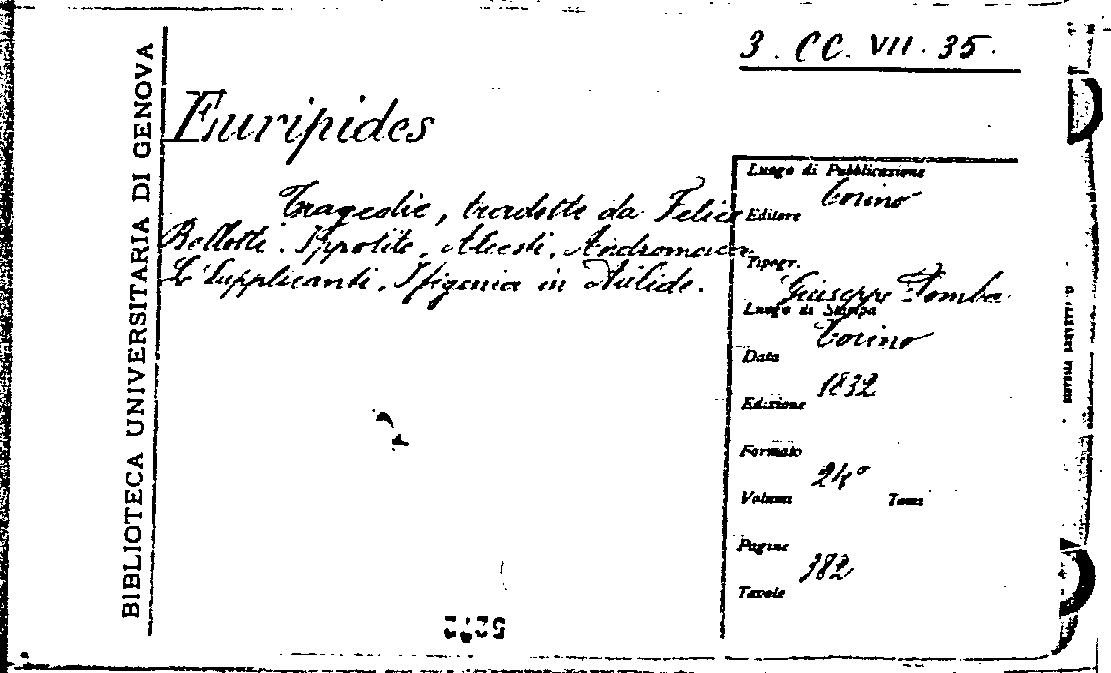 3. CC. VII. 35.
BIBLIOTECA UNIVERSITARIA DI GENOVA
Euripides
Tragedie, tradotte da Felice
Bellotti. Ippolito, Alcesti, Andromaca,
Le Supplicanti, Ifigenia in Aulide.
Luogo di Pubblicazione
Torino
Editore
Tipogr.
Giuseppe Pomba
Luogo di Stampa
Torino
Data
1832
Edizione
Formato
24º
Volumi Tomi
Pagine
382
Tavole